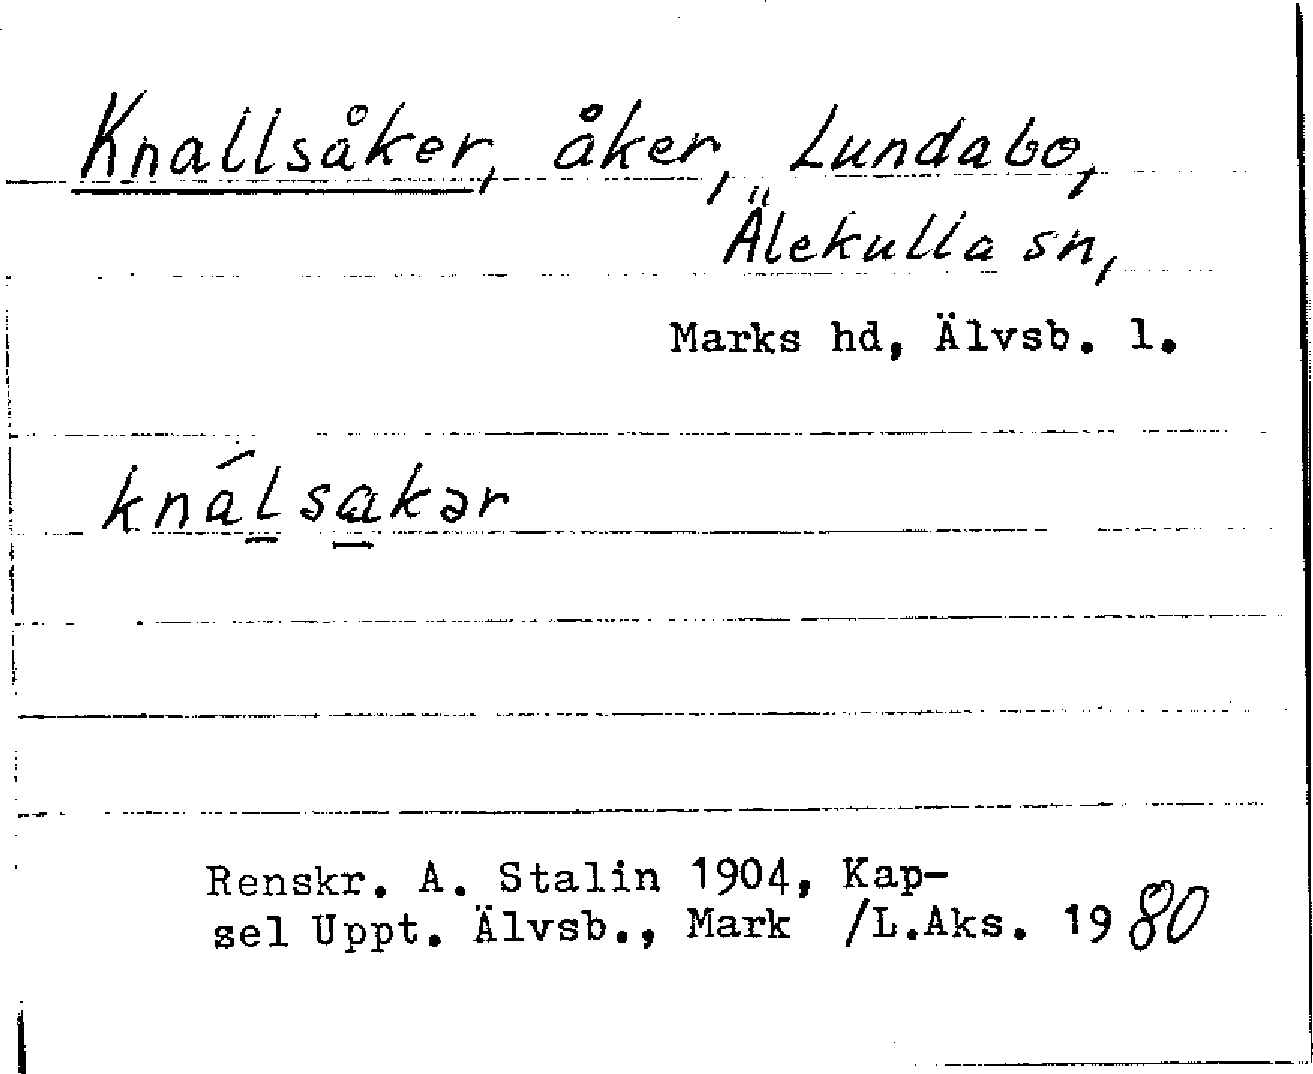 Knallsåker, åker, Lundabo,
Älekulla sn,
Marks hd, Älvsb. l.
knálsakər
Renskr. A. Stalin 1904, Kap-
sel Uppt. Älvsb., Mark /L.Aks. 1980